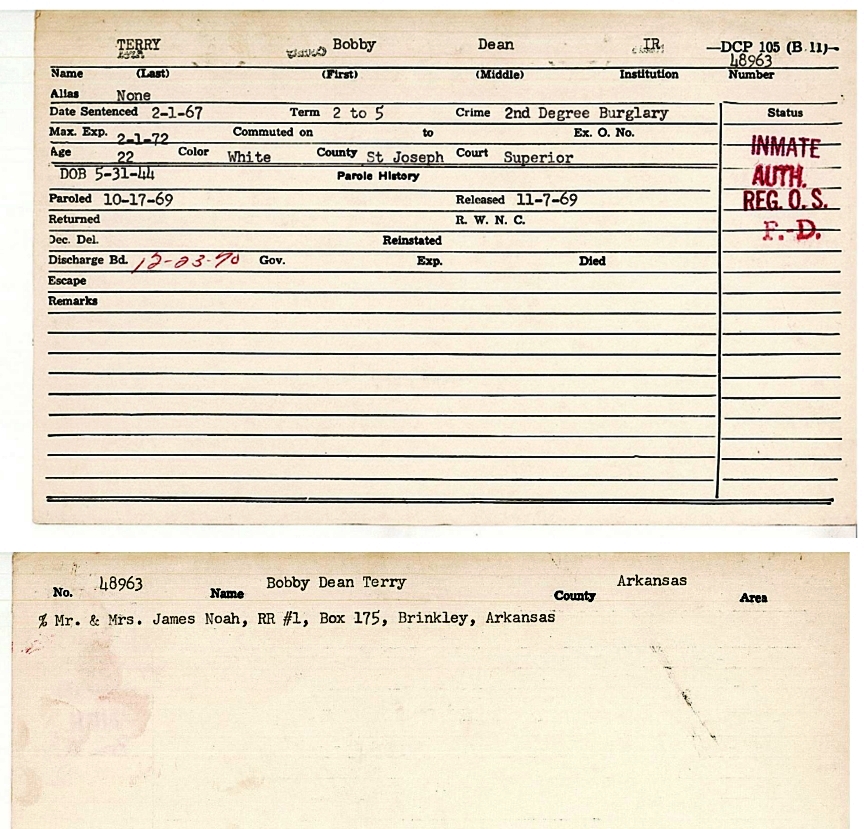 TERRY Bobby Dean IR —DCP 105 (B 11)—
48963
Name (Last) (First) (Middle) Institution Number
Alias None
Date Sentenced 2-1-67 Term 2 to 5 Crime 2nd Degree Burglary Status
Max. Exp. 2-1-72 Commuted on to Ex. O. No.
INMATE
Age 22 Color White County St Joseph Court Superior
DOB 5-31-44 Parole History
AUTH.
Paroled 10-17-69 Released 11-7-69
REG. O. S.
Returned R. W. N. C.
F.-D.
Dec. Del. Reinstated
Discharge Bd. 12-23-70 Gov. Exp. Died
Escape
Remarks
No. 48963 Name Bobby Dean Terry County Arkansas Area
% Mr. & Mrs. James Noah, RR #1, Box 175, Brinkley, Arkansas